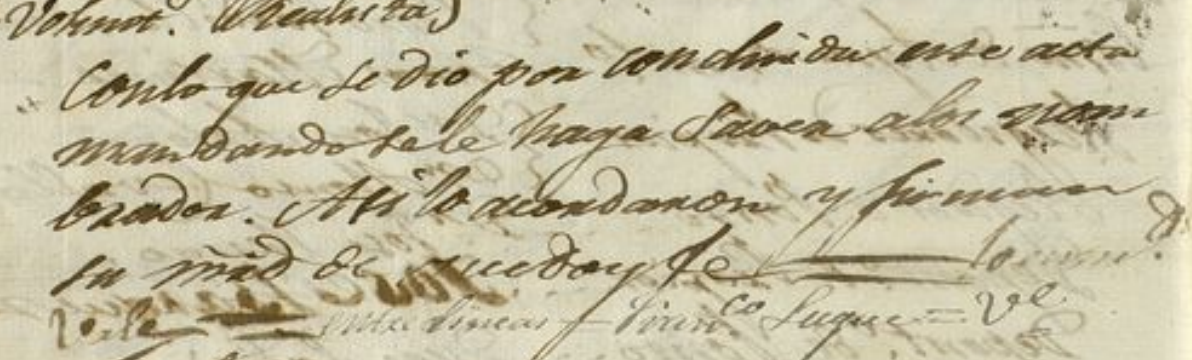 Volunt.s Realistas
Con lo que se dio por conchuida este acta
mandandosele haga saver a los nom
brados. Asi lo acordaron y firman
su mrd de que doy fe = enmend.do
Vale = entre lineas = Fran.co Luque = Ve.